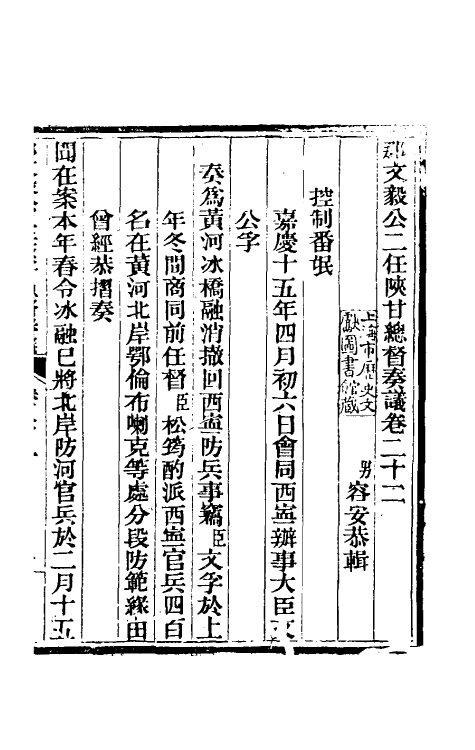 那文毅公二任陝甘總督奏議卷二十二
上海市歷史文
獻圖書館藏
男容安恭輯
控制番氓
嘉慶十五年四月初六日會同西寧辦事大臣文
公孚
奏爲黃河冰橋融消撤回西寧防兵事竊臣文孚於上
年冬間商同前任督臣松筠酌派西寧官兵四百
名在黃河北岸鄂倫布喇克等處分段防範緣由
曾經恭摺奏
聞在案本年春令冰融已將北岸防河官兵於二月十五